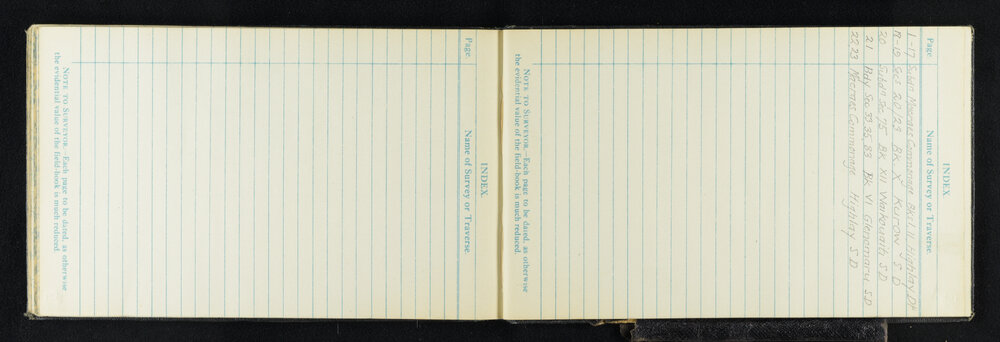 INDEX.
Page. Name of Survey or Traverse.
1-17 Subdn Macraes Cambridge Bk I II Highlay Dt
18-19 Secs 20/23 BK X Kuroow S D
20 Subdn Sec 75 BK XII Waikouaiti S D
21 Bdy Sec 33,35,83 Bk VI Glenomaru S D
22,23 Macraes Cambridge Highlay S D
NOTE TO SURVEYOR.—Each page to be dated, as otherwise
the evidential value of the field-book is much reduced.
INDEX.
Page. Name of Survey or Traverse.
NOTE TO SURVEYOR.—Each page to be dated, as otherwise
the evidential value of the field-book is much reduced.